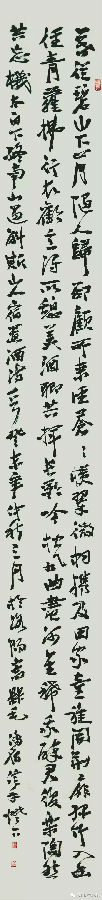 暮從碧山下山月隨人歸卻顧所來徑蒼々橫翠微相攜及田家童稚開荊扉綠竹入幽
徑青蘿拂行衣歡言得所憩美酒聊共揮長歌吟松風曲盡河星稀我醉君復樂陶然
共忘機太白下終南山過斛斯山人宿置酒詩一首